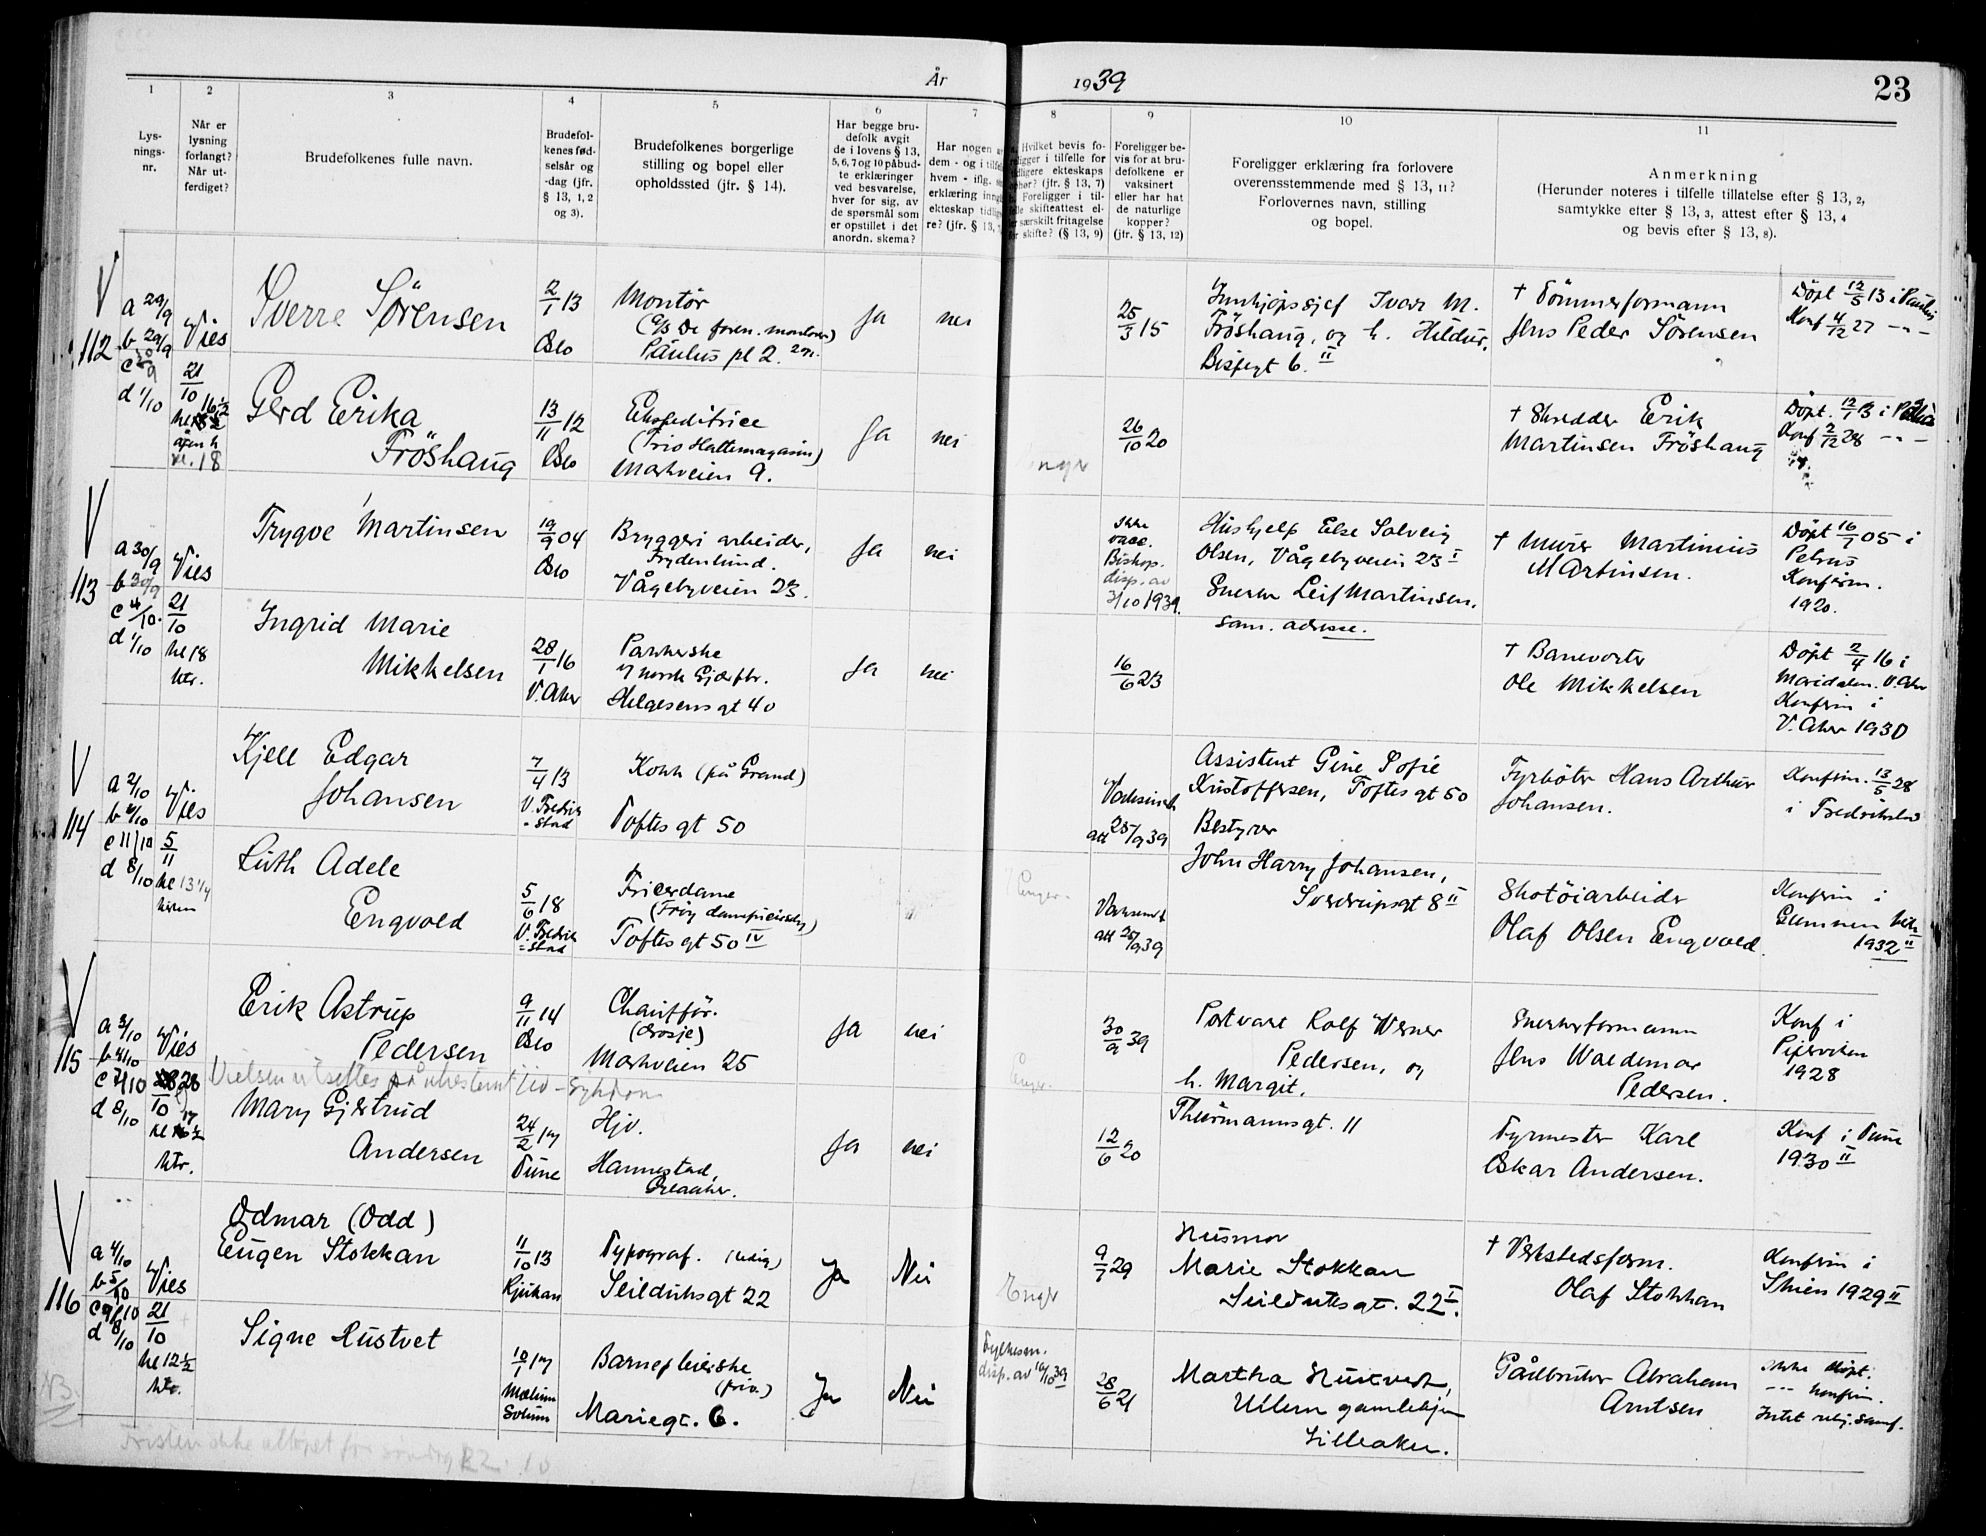 År 1939
23
1
2
3
4
5
6
7
8
9
10
11
Lys-
nings-
nr.
Når er
lysning
forlangt?
Når ut-
ferdiget?
Brudefolkenes fulle navn.
Brudefol-
kenes fød-
selsår og
-dag (jfr.
§ 13, 1, 2
og 3).
Brudefolkenes borgerlige
stilling og bopel eller
opholdssted (jfr. § 14).
Har begge bru-
defolk avgit
de i lovens § 13,
5, 6, 7 og 10 påbud-
te erklæringer
ved besvarelse,
hver for sig, av
de spørsmål som
er opstillet i det
anordn. skema?
Har nogen
dem - og i
hvem - iflg.
erklæring
ekteskap
re? (jfr. § 13,
Hvilket bevis fo-
ligger i tilfelle for
ekteskaps
(jfr. § 13, 7)
Foreligger i til-
skifteattest el-
særskilt fritagelse
skifte? (§ 13, 9)
Foreligger be-
vis for at bru-
defolkene er
vaksinert
eller har hat
de naturlige
kopper?
(jfr. § 13, 12)
Foreligger erklæring fra forlovere
overensstemmende med § 13, 11?
Forlovernes navn, stilling
og bopel.
Anmerkning
(Herunder noteres i tilfelle tillatelse efter § 13, 2,
samtykke efter § 13, 3, attest efter § 13, 4
og bevis efter § 13, 8).
V
112
a 29/9
b 29/9
d 1/10
Vies
21/10
kl. 18
Sverre Sörensen
2/1 13
Oslo
Montör
Paulus pl 2.
Ja
nei
25/3 15
Innkjöpssjef Ivar M.
Fröshaug, og h. Hildur.
Bispegt 6. II
† Tömmerformann
Jens Peder Sörensen
Döpt 12/5 13 i Paulus
Konf 4/12 27 -"-
Gerd Erika
Fröshaug
13/11 12
Oslo
Ekspeditrice
(Trio Hattemagasin)
Markveien 9.
Ja
nei
26/10 20
† Skredder Erik
Martinsen Fröshaug
Konf 2/12 28 -"-
V
113
a 30/9
b 30/9
c 4/10.
d 1/10
Vies
21/10
kl 18
ktr.
Trygve Martinsen
19/9 04
Oslo
Bryggeri arbeider,
Frydenlund.
Vågebyveien 23.
Ja
nei
Ikke
vacc.
Biskop.
disp. av
3/10 1939.
Hushjelp Else Solveig
Olsen, Vågebyveien 23 I
Snekker Leif Martinsen,
sam. adresse.
† Murer Martinius
Martinsen.
Döpt 16/7 05 i
Petrus
Konfirm.
1920.
Ingrid Marie
Mikkelsen
28/1 16
V. Aker
Pakkerske
v/ norsk Gjærfbr.
Helgesens gt 40
Ja
nei
16/6 23
† Banevokter
Ole Mikkelsen
Döpt 2/4 16 i
Maridalen. V. Aker
Konfirm i
V. Aker 1930
V
114
a 2/10
c 11/10
d 8/10
Vies
5/11
kl 13 1/4
kirken
Kjell Edgar
Johansen
7/4 13
V. Fredrik
-stad
Kokk (på Grand)
Toftes gt 50
att 25/9 39
Assistent Gine Sofie
Kristoffersen, Toftes gt 50
Bestyrer
John Harry Johansen,
Sverdrupsgt 8 II
Fyrböter Hans Arthur
Johansen.
Konfirm. 13/5 28
i Fredrikstad
Ruth Adele
Engvold
5/6 18
V. Fredrik
-stad
Friserdame
Toftes gt 50 IV
att 25/9 39
Skotöiarbeider
Olaf Olsen Engvold.
Konfirm i
1932 II
V
115
a 3/10
b 4/10
c 7/10
d 8/10
Vies
28/10
ktr.
Erik Astrup
Pedersen
9/11 14
Oslo
Chaufför.
(drosje)
Markveien 25
Ja
nei
30/9 39
Rolf Werner
Pedersen, og
h. Margit,
Thurmannsgt. 11
Snekkerformann
Jens Waldemar
Pedersen.
Konf i
Pipervikens
1928
Vielsen utsettes på ubestemt tid - Sykdom
Mary Gjertrud
Andersen
24/2 17
Tune
Hjv.
Hannestad,
Ja
nei
12/6 20
Fyrmester Karl
Oskar Andersen.
Konf i Tune
1930 II
V
116
a 4/10
b 5/10
c 9/10
d 8/10
Vies
21/10
kl 12 1/2
ktr.
NB.
Odmar (Odd)
Eugen Stokkan
11/10 13
Rjukan
Typograf. (ledig)
Seilduksgt 22
Ja
Nei
Enger
9/7 29
Husmor
Marie Stokkan
Seilduksgt. 22 I.
† Verkstedsform.
Olaf Stokkan
Konfirm i
Skien 1929 II
Signe Rustvet
10/1 17
Mælum
Solum
Barnepleierske
(priv.)
Mariegt. 6.
Ja
Nei
Fylkesm.
disp. av 10/10 39
28/6 21
Martha Rustvedt,
Ullern gamlehjem
Lilleaker.
Gårdbruker Abraham
Arntsen
Ikke döpt.
-"- konfirm.
Intet relig. samf.
Fristen ikke utlöpet för söndag 22. 10